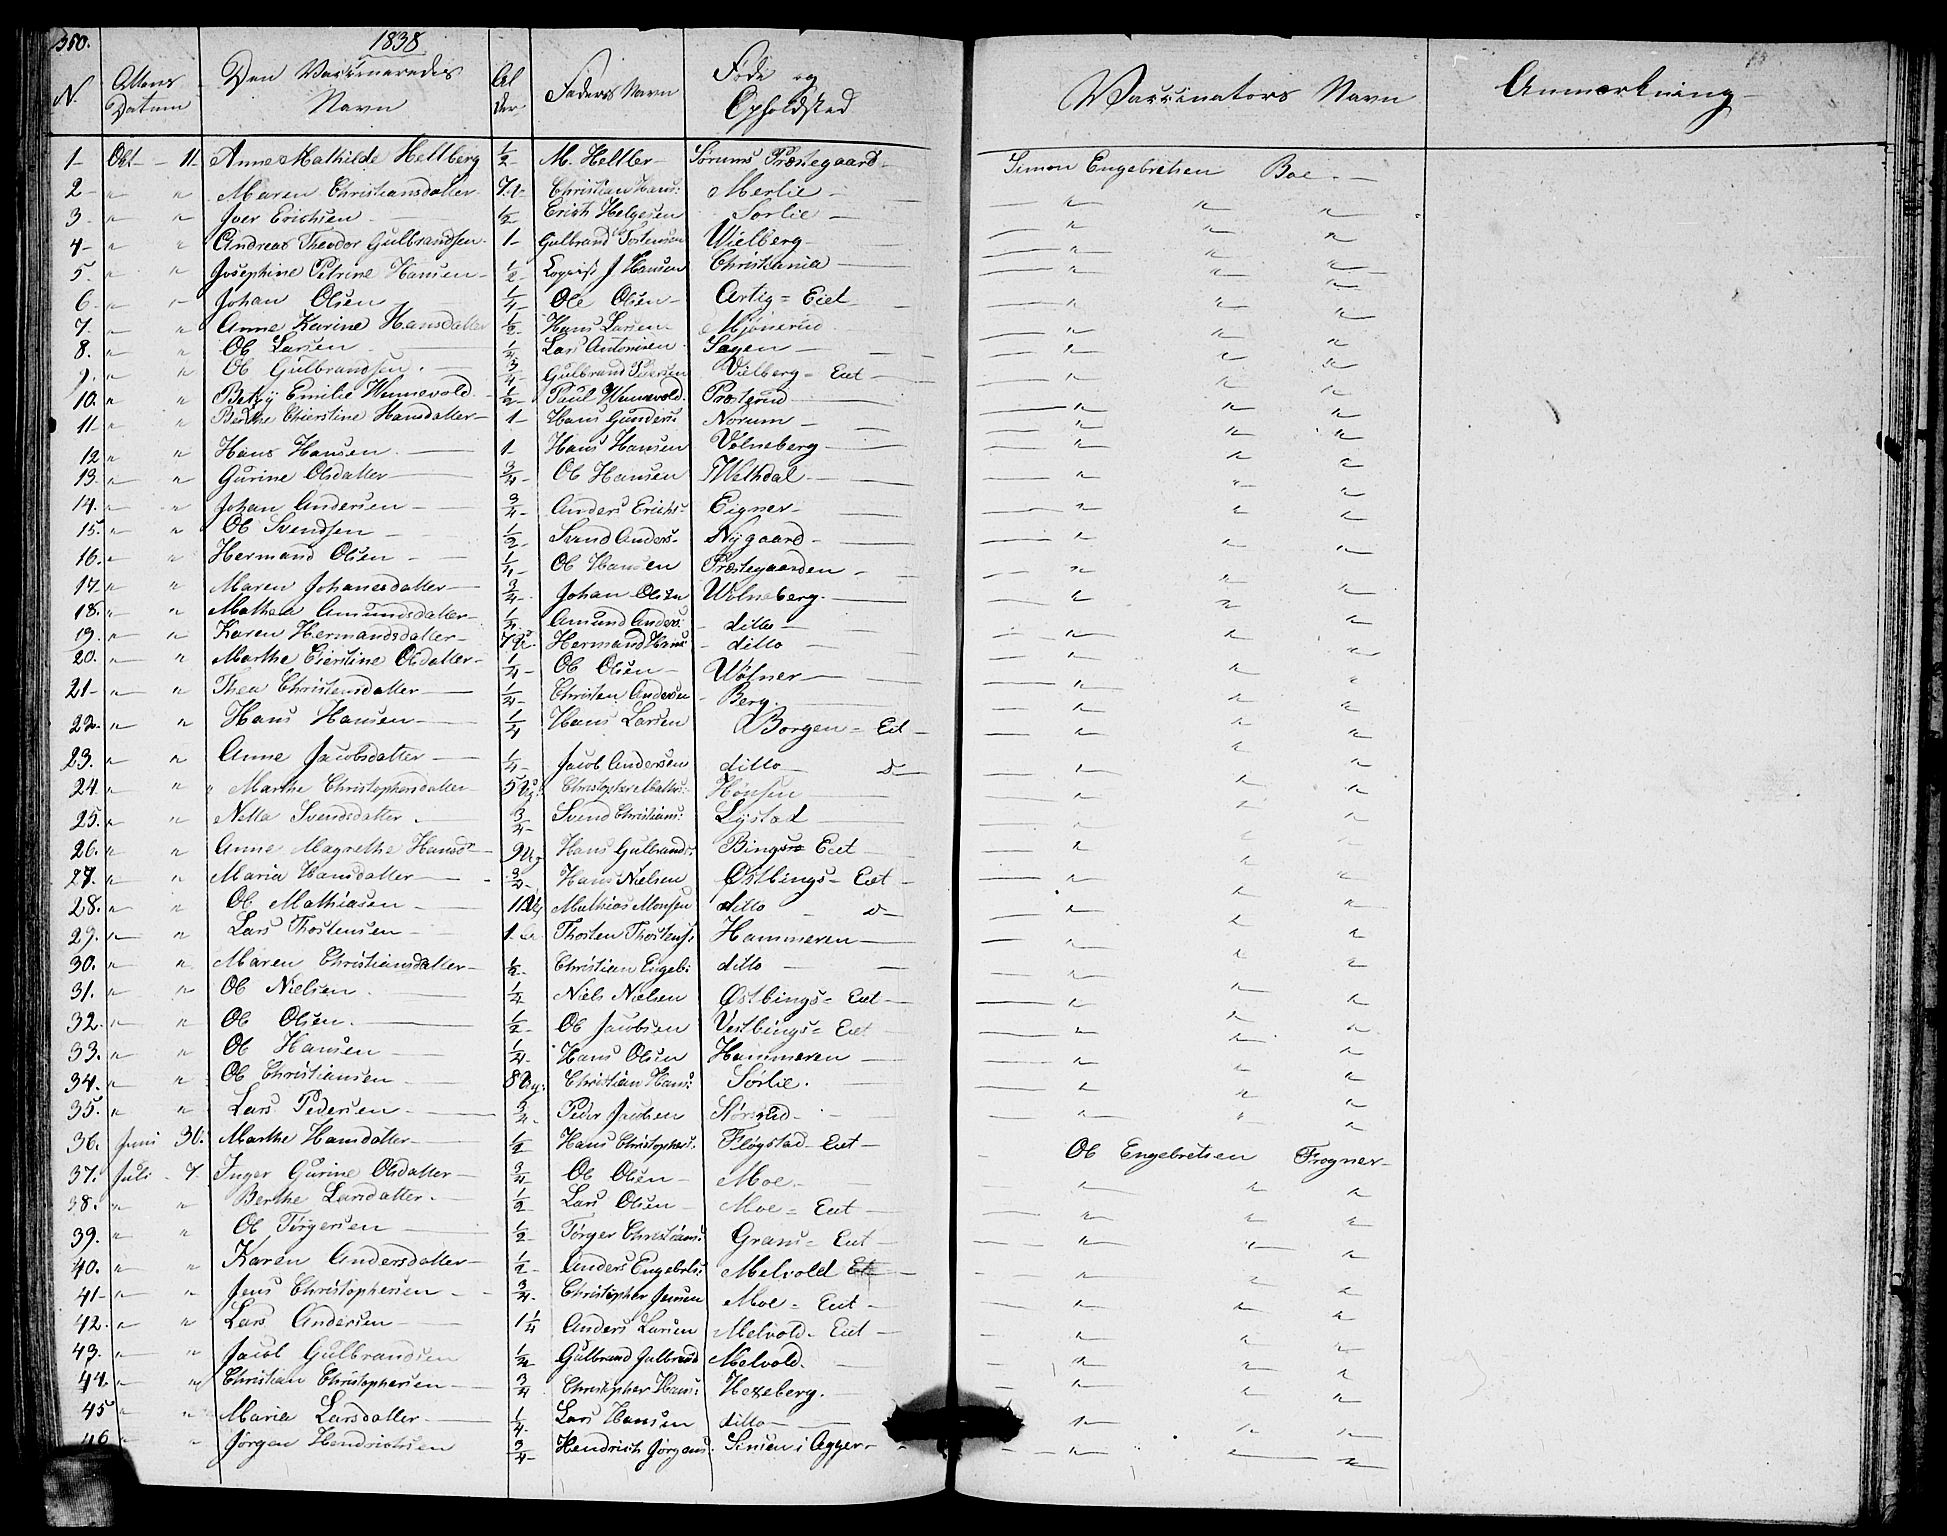 350. 1838
N. Attens Datum Den Vaccineredes Navn Alder Faders Navn Føde og Opholdsted Vaccinators Navn Anmærkning
1- Obt - 11- Anne Mathilde Hellberg 1/2 M. Heltler - Sørums Præstegaard - Simon Engebretsen Boe. -
2- " " Maren Christiansdatter Christian Hans: Merlie - " " "
3- " " Iver Erichsen - 1/2 Erich Helgesen Sørlie - " " "
4- " " Andreas Theodor Gulbrandsen - 1- Gulbrand Tostensen Wielberg - " " "
5. " " Josephine Petrine Hansen - 1/2 J Hansen Christiania - " " "
6- " " Johan Olsen - 1/4 Ole Olsen - Artig = Eiet - " " "
7. " " Anne Karine Hansdatter 1/2 Hans Larsen Mjønerud " " "
8. " " Ob Larsen 1/4 Lars Antonisen Hagen - " " "
9. " " Ob Gulbrandsen. - 3/4 Gulbrand Iversen Vielberg = Eiet - " " "
10. " " Betzÿ Emilie Wennevold 1/2- Paul Wennevold. Præsterud " " "
11- " " Berthe Chierstine Hansdatter - 1- Hans Gunders: Norum - " " "
12 " " Hans Hansen. - 1- Hans Hansen Vølneberg - " " "
13. " " Gurine Olsdatter - 3/4 Ob Hansen Wethdal. - " " "
14. " " Johan Andersen - 3/4- Anders Erichs: Eigner - " " "
15. " " Ob Svendsen - 1/2- Svend Anders- Nÿgaard - " " "
16. " " Hermand Olsen - 1/4- Ob Hansen Præstegaarden - " " "
17 " " Maren Johanesdatter - 3/4 Johan Olsen Wolneberg. - " " "
18. " " Mathea Amundsdatter - 1/4 Amund Anders: - ditto - " " "
19. " " Karen Hermandsdatter - Hermand Hans: - ditto - " " "
20. " " Marthe Cierstine Olsdatter - 1/4- Ob Olsen - Wølner - " " "
21- " " Thea Christensdatter - 1/4- Christen Andersen - Berg. " " "
22. " " Hans Hansen - 1/4 Hans Larsen Borgen = Eit - " " "
23. " " Anne Jacobsdatter - 1/4- Jacob Andersen ditto - d - " " "
24. " " Marthe Christophersdatter 5 Ug. Christopher Mathis: Hønsen " " "
25. " " Netta Svendsdatter. 3/4- Svend Christians: Lystad " " "
26. " " Anne Magrethe Hansdr - 9 Ug Hans Gulbrands: Bings = Eiet - " " "
27. " " Maria Hansdatter - 3/4- Hans Nielsen Østbings = Eiet - " " "
28. " " Ob Mathiasen - 11 Ug Mathias Monsen ditto - d - " " "
29. " " Lars Thostensen - 1- Thosten Thostens: Hammeren - " " "
30. " " Maren Christiansdatter - 1/2- Christian Engeb: ditto - " " "
31. " " Ob Nielsen. - 1/4 Niels Nielsen Østbings = Eiet - " " "
32. " " Ob Olsen. - 1/2- Ob Jacobsen Vestbings = Eiet " " "
33. " " Ob Hansen - 1/4. Hans Olsen Hammeren - " " "
34. " " Ob Christiansen - 8 Ug: Christian Hans: Sørlie. " " "
35. " " Lars Pedersen - 3/4. Peder Jacobsen Størsrud - " " "
36. Juni 30. Marthe Hansdatter - 1/2 Hans Christophers: Fløgstad - Eiet - Ob Engebretsen Frogner -
37. Juli - 7. Inger Gurine Olsdatter - 3/4 Ob Olsen - Moe. - " " "
38. " " Berthe Larsdatter. - 1/2 Lars Olsen - Moe = Eiet - " " "
39. " " Ob Tørgersen - 1/2 Tørger Christians: Grans = Eiet - " " "
40. " " Karen Andersdatter - 1/2- Anders Engebrets: Melvold Eit - " " "
41- " " Jens Christophersen - 3/4. Christopher Jensen Moe = Eiet - " " "
42. " " Lars Andersen - 1 1/4 Anders Larsen Melvold - Eiet - " " "
43. " " Jacob Gulbrandsen 1/2- Gulbrand Gulbrand Melvold. - " " "
44. " " Christian Christophersen - 3/4 Christopher Hans: Hexeberg. " " "
45 " " Maria Larsdatter - 1/4. Lars Hansen ditto - " " "
46 " " Jørgen Hendrichsen 3/4- Hendrich Jørgens: Simen i Agger - " " "